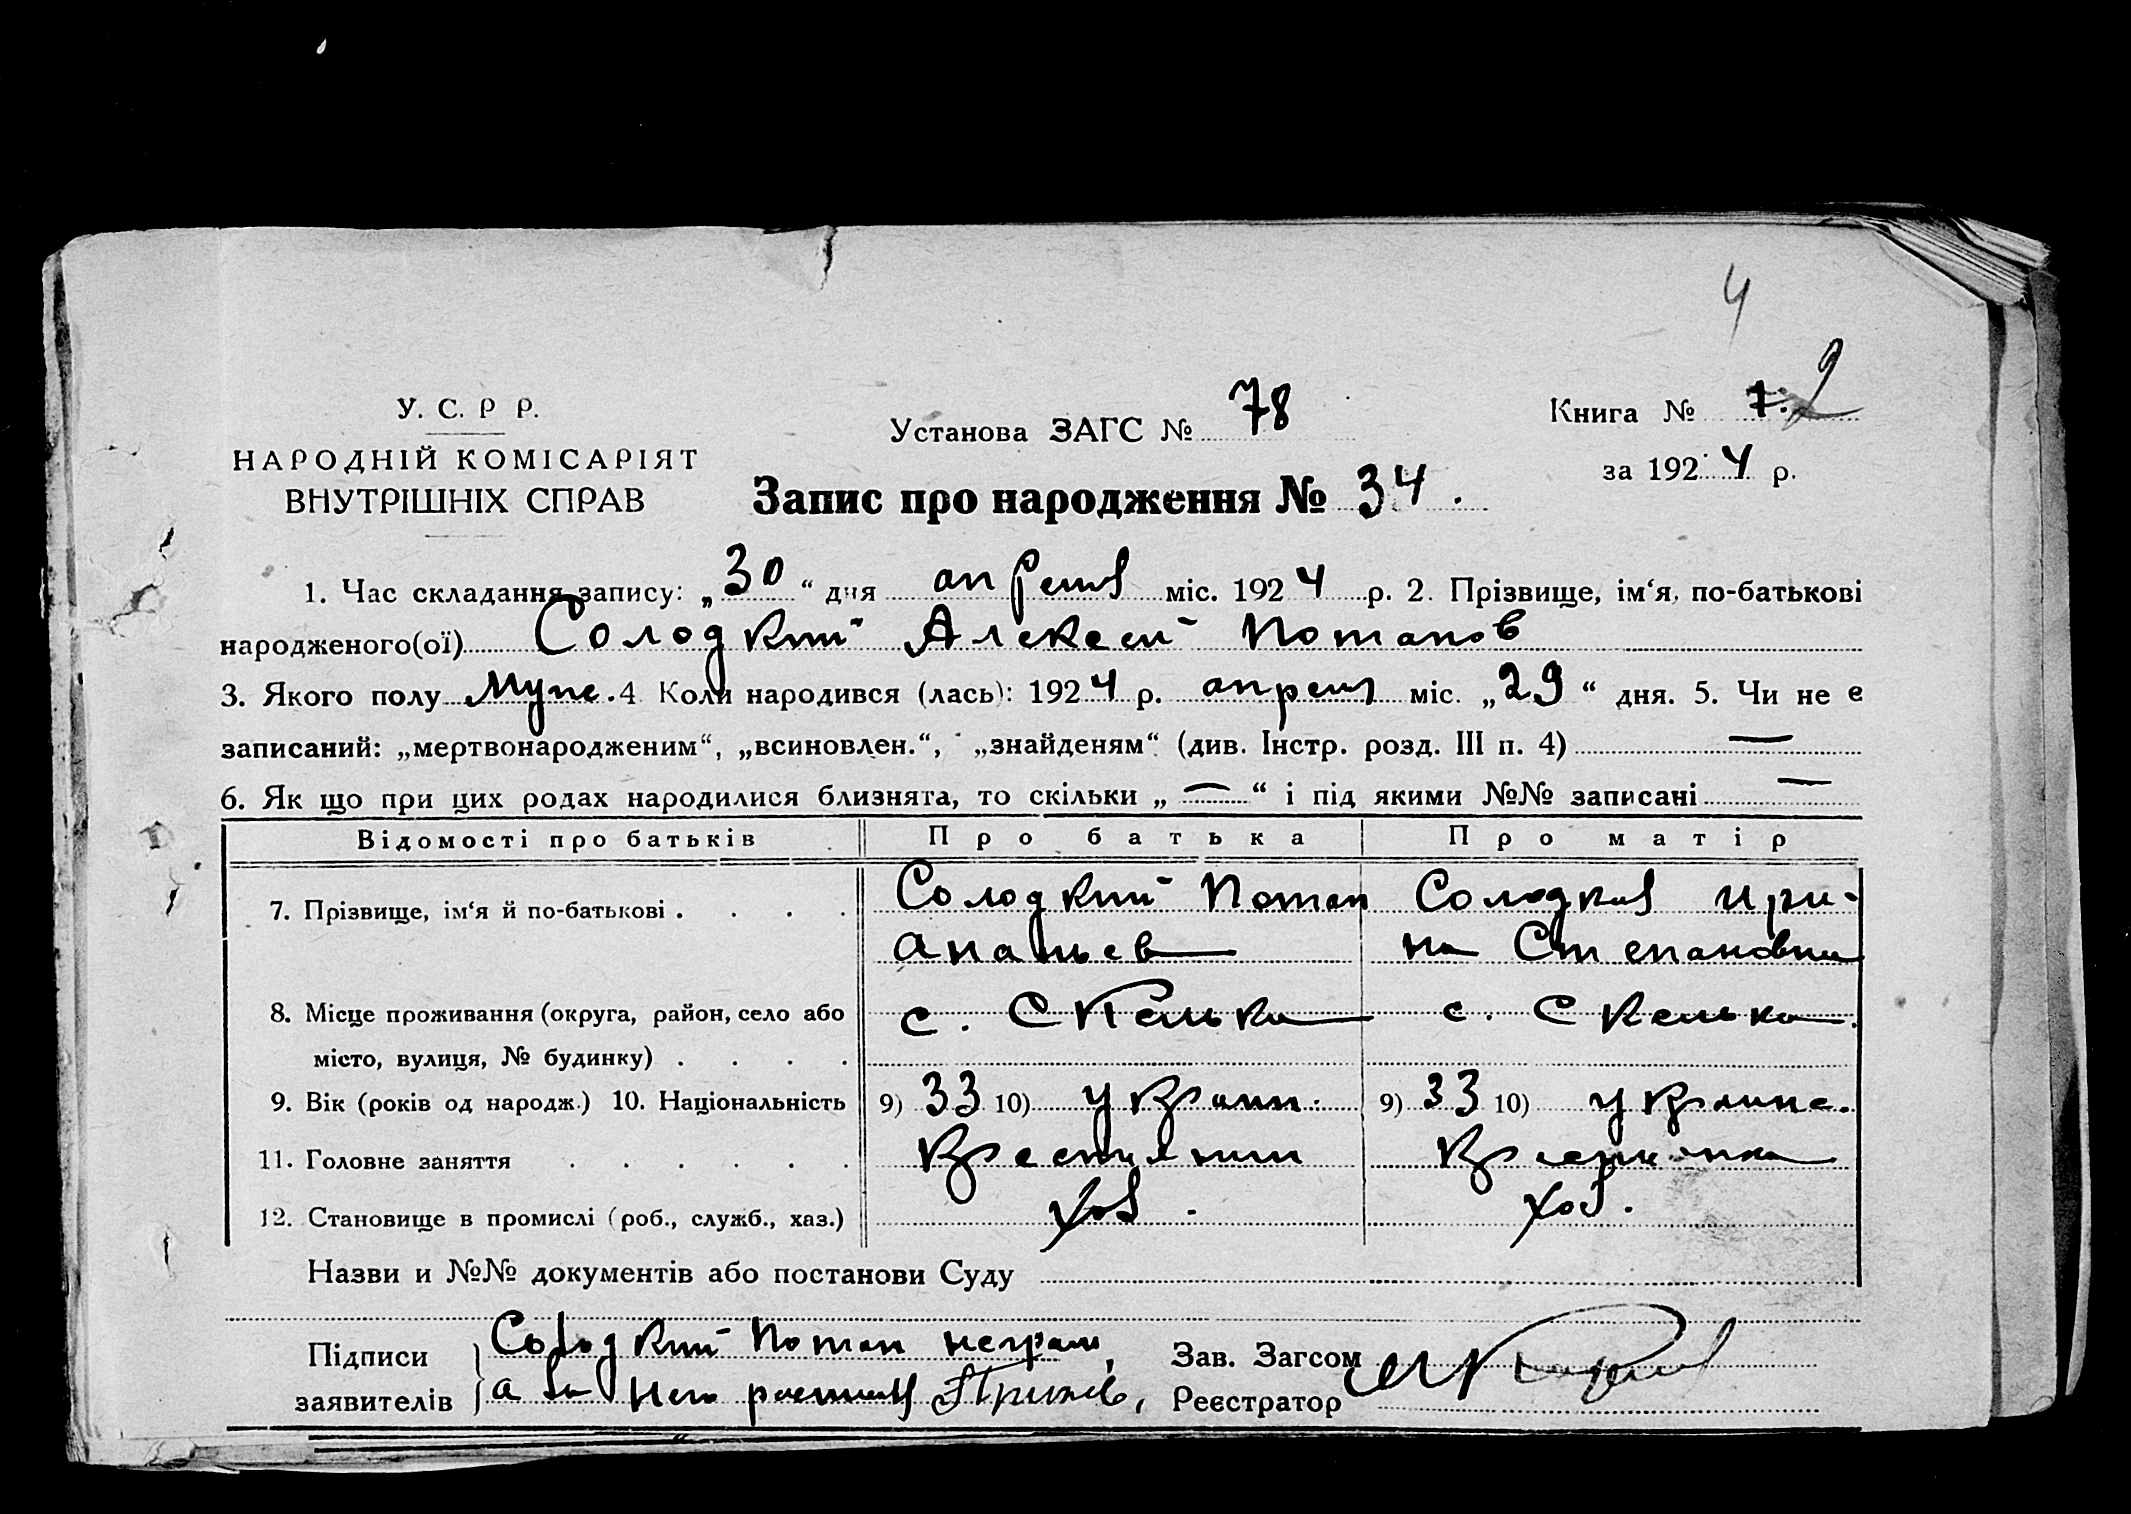 4
У. С. Р Р.
НАРОДНІЙ КОМІСАРІЯТ
ВНУТРІШНІХ СПРАВ
Установа ЗАГС № 78
Книга № 1. 2
за 1924 р.
Запис про народження № 34.
1. Час складання запису: „30“ дня апреля міс. 1924 р. 2. Прізвище, ім‘я, по-батькові
народженого(ої) Солодкий Алексей Потапов
3. Якого полу Муже. 4 Коли народився (лась): 1924 р. апреля міс. „29“ дня. 5. Чи не є
записаний: „мертвонародженим“, „всиновлен.“, „знайденям“ (див. Інстр. розд. III п. 4) —
6. Як що при цих родах народилися близнята, то скільки „—“ і під якими №№ записані —
Відомості про батьків Про батька Про матір
7. Прізвище, ім‘я й по-батькові . . . . Солодкий Потап Солодкая Ири-
Ананьев на Степановна
8. Місце проживання (округа, район, село або с. Скелька с. Скелька.
місто, вулиця, № будинку) . . . .
9. Вік (років од народж.) 10. Національність 9) 33 10) Украин. 9) 33 10) Украинс.
11. Головне заняття . . . . . . Крестянин Крестянка
12. Становище в промислі (роб., служб., хаз.) хоз. хоз.
Назви и №№ документів або постанови Суду
Підписи Солодкий Потап неграм,
заявителів а за него
Зав. Загсом
Реєстратор